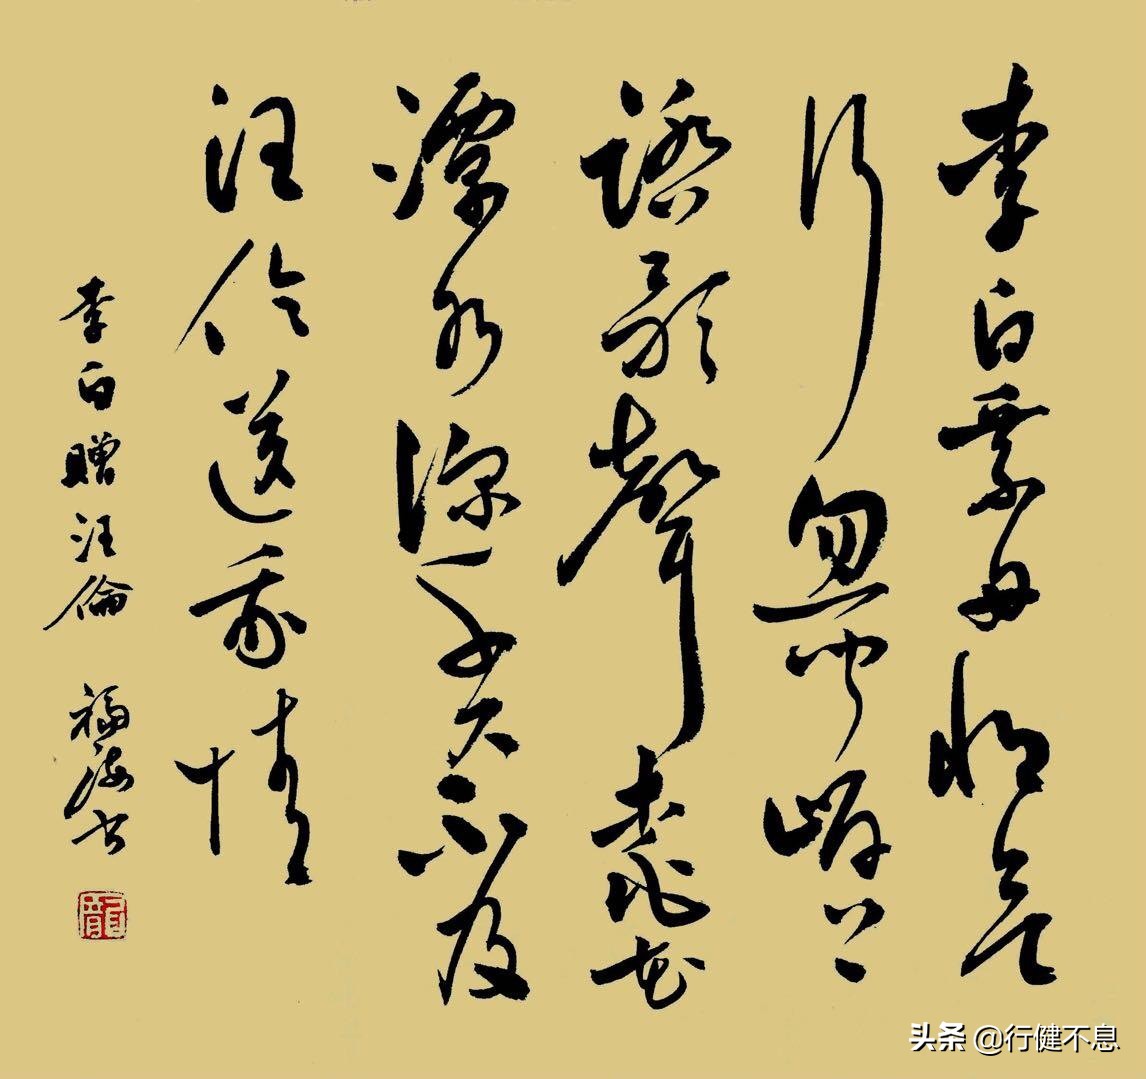 李白乘舟將欲
行忽聞岸上
踏歌聲桃花
潭水深千尺不及
汪倫送我情
李白贈汪倫 福海书
龍
头条 @行健不息